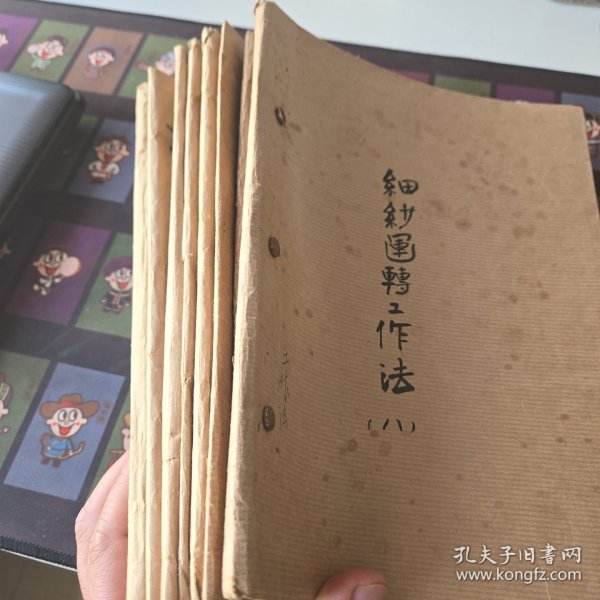 細紗運轉工作法
（八）
工作法
孔夫子旧书网
www.kongfz.com